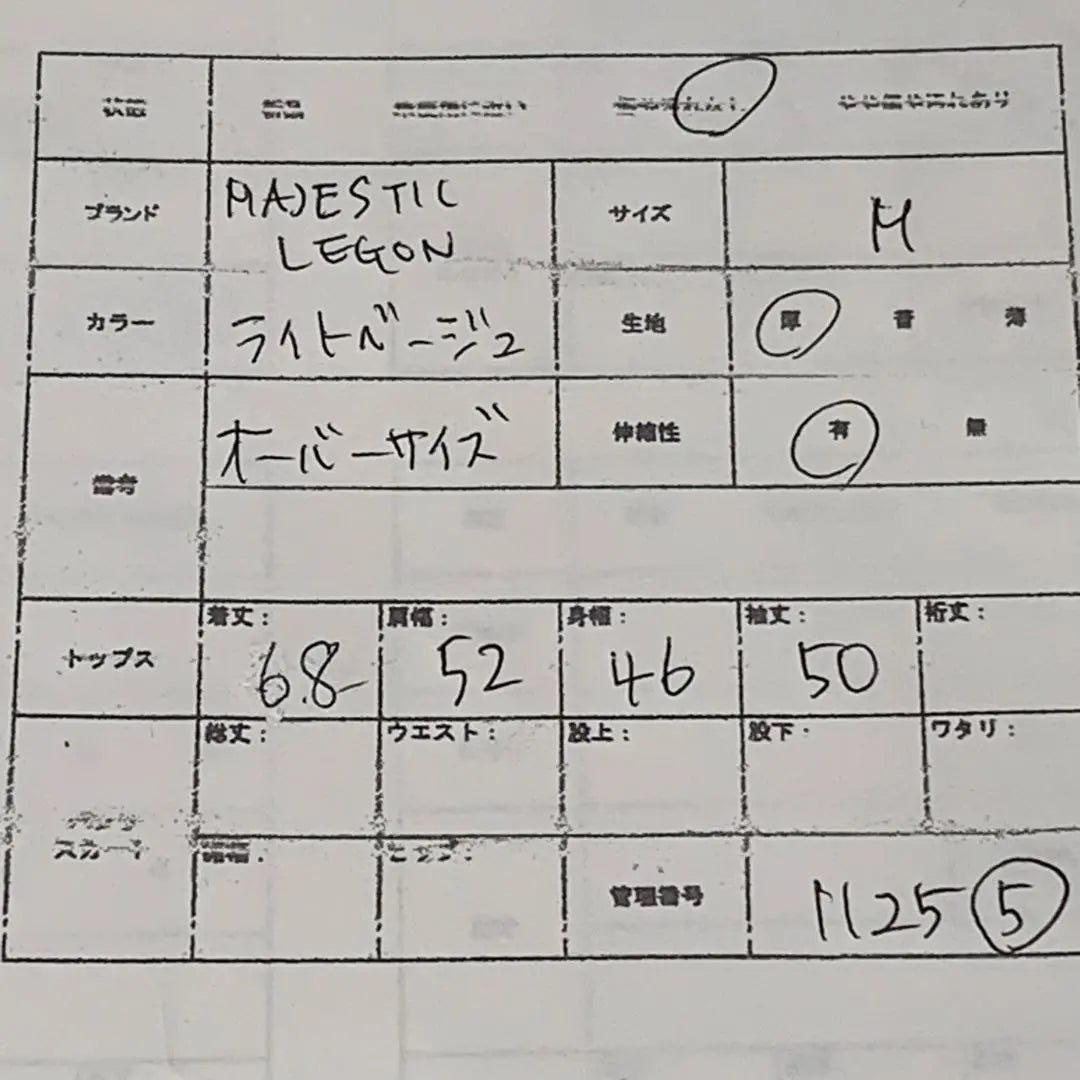 状態
ブランド MAJESTIC
LEGON サイズ M
カラー ライトベージュ 生地 厚 普 薄
備考 オーバーサイズ 伸縮性 有 無
着丈: 肩幅: 身幅: 袖丈: 裄丈:
トップス 68 52 46 50
総丈: ウエスト: 股上: 股下: ワタリ:
スカート ヒップ:
管理番号 1125⑤